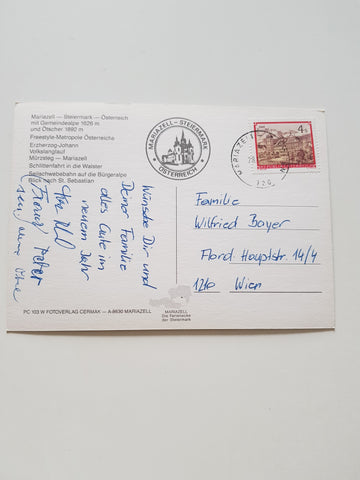 Mariazell – Steiermark – Österreich
mit Gemeindealpe 1626 m
und Ötscher 1892 m
Freestyle-Metropole Österreichs
Erzherzog-Johann
Volkslanglauf
Mürzsteg — Mariazell
Schlittenfahrt in die Walster
Seilschwebebahn auf die Bürgeralpe
Blick nach St. Sebastian
MARIAZELL – STEIERMARK
ÖSTERREICH
4 S
MARIAZELL
Wünsche Dir und
Deiner Familie
alles Gute im
neuem Jahr
Familie
Wilfried Bayer
Flord. Hauptstr. 14/4
1210 Wien
PC 103 W FOTOVERLAG CERMAK — A-8630 MARIAZELL
MARIAZELL
Die Ferienecke
der Steiermark